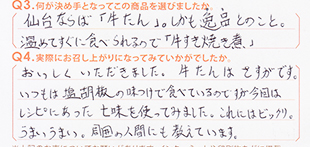 Q3.何が決め手となってこの商品を選びましたか。
仙台ならば「牛たん」。しかも逸品とのこと。
温めてすぐに食べられるので「牛すき焼き煮」
Q4.実際にお召し上がりになってみていかがでしたか。
おいしくいただきました。牛たんはさすがです。
いつもは塩胡椒の味つけで食べているのですが今回は
レシピにあった七味を使ってみました。これにはビックリ。
うまいうまい。周囲の人間にも教えています。